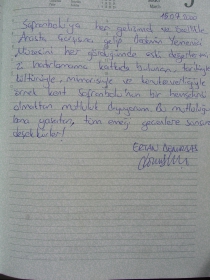 Safranbolu'ya her gelişimde ve özellikle
Arasta Çarşısına gelip
Müzesini her gördüğümde eski değerlerimi
hatırlamama katkıda bulunan, tarihiyle
kültürüyle, mimarisiyle ve
örnek kent Safranbolu'nun bir hemşehrisi
olmaktan mutluluk duyuyorum. Bu mutluluğu
bana yaşatan, tüm emeği geçenlere sonsuz
teşekkürler!
ERTAN